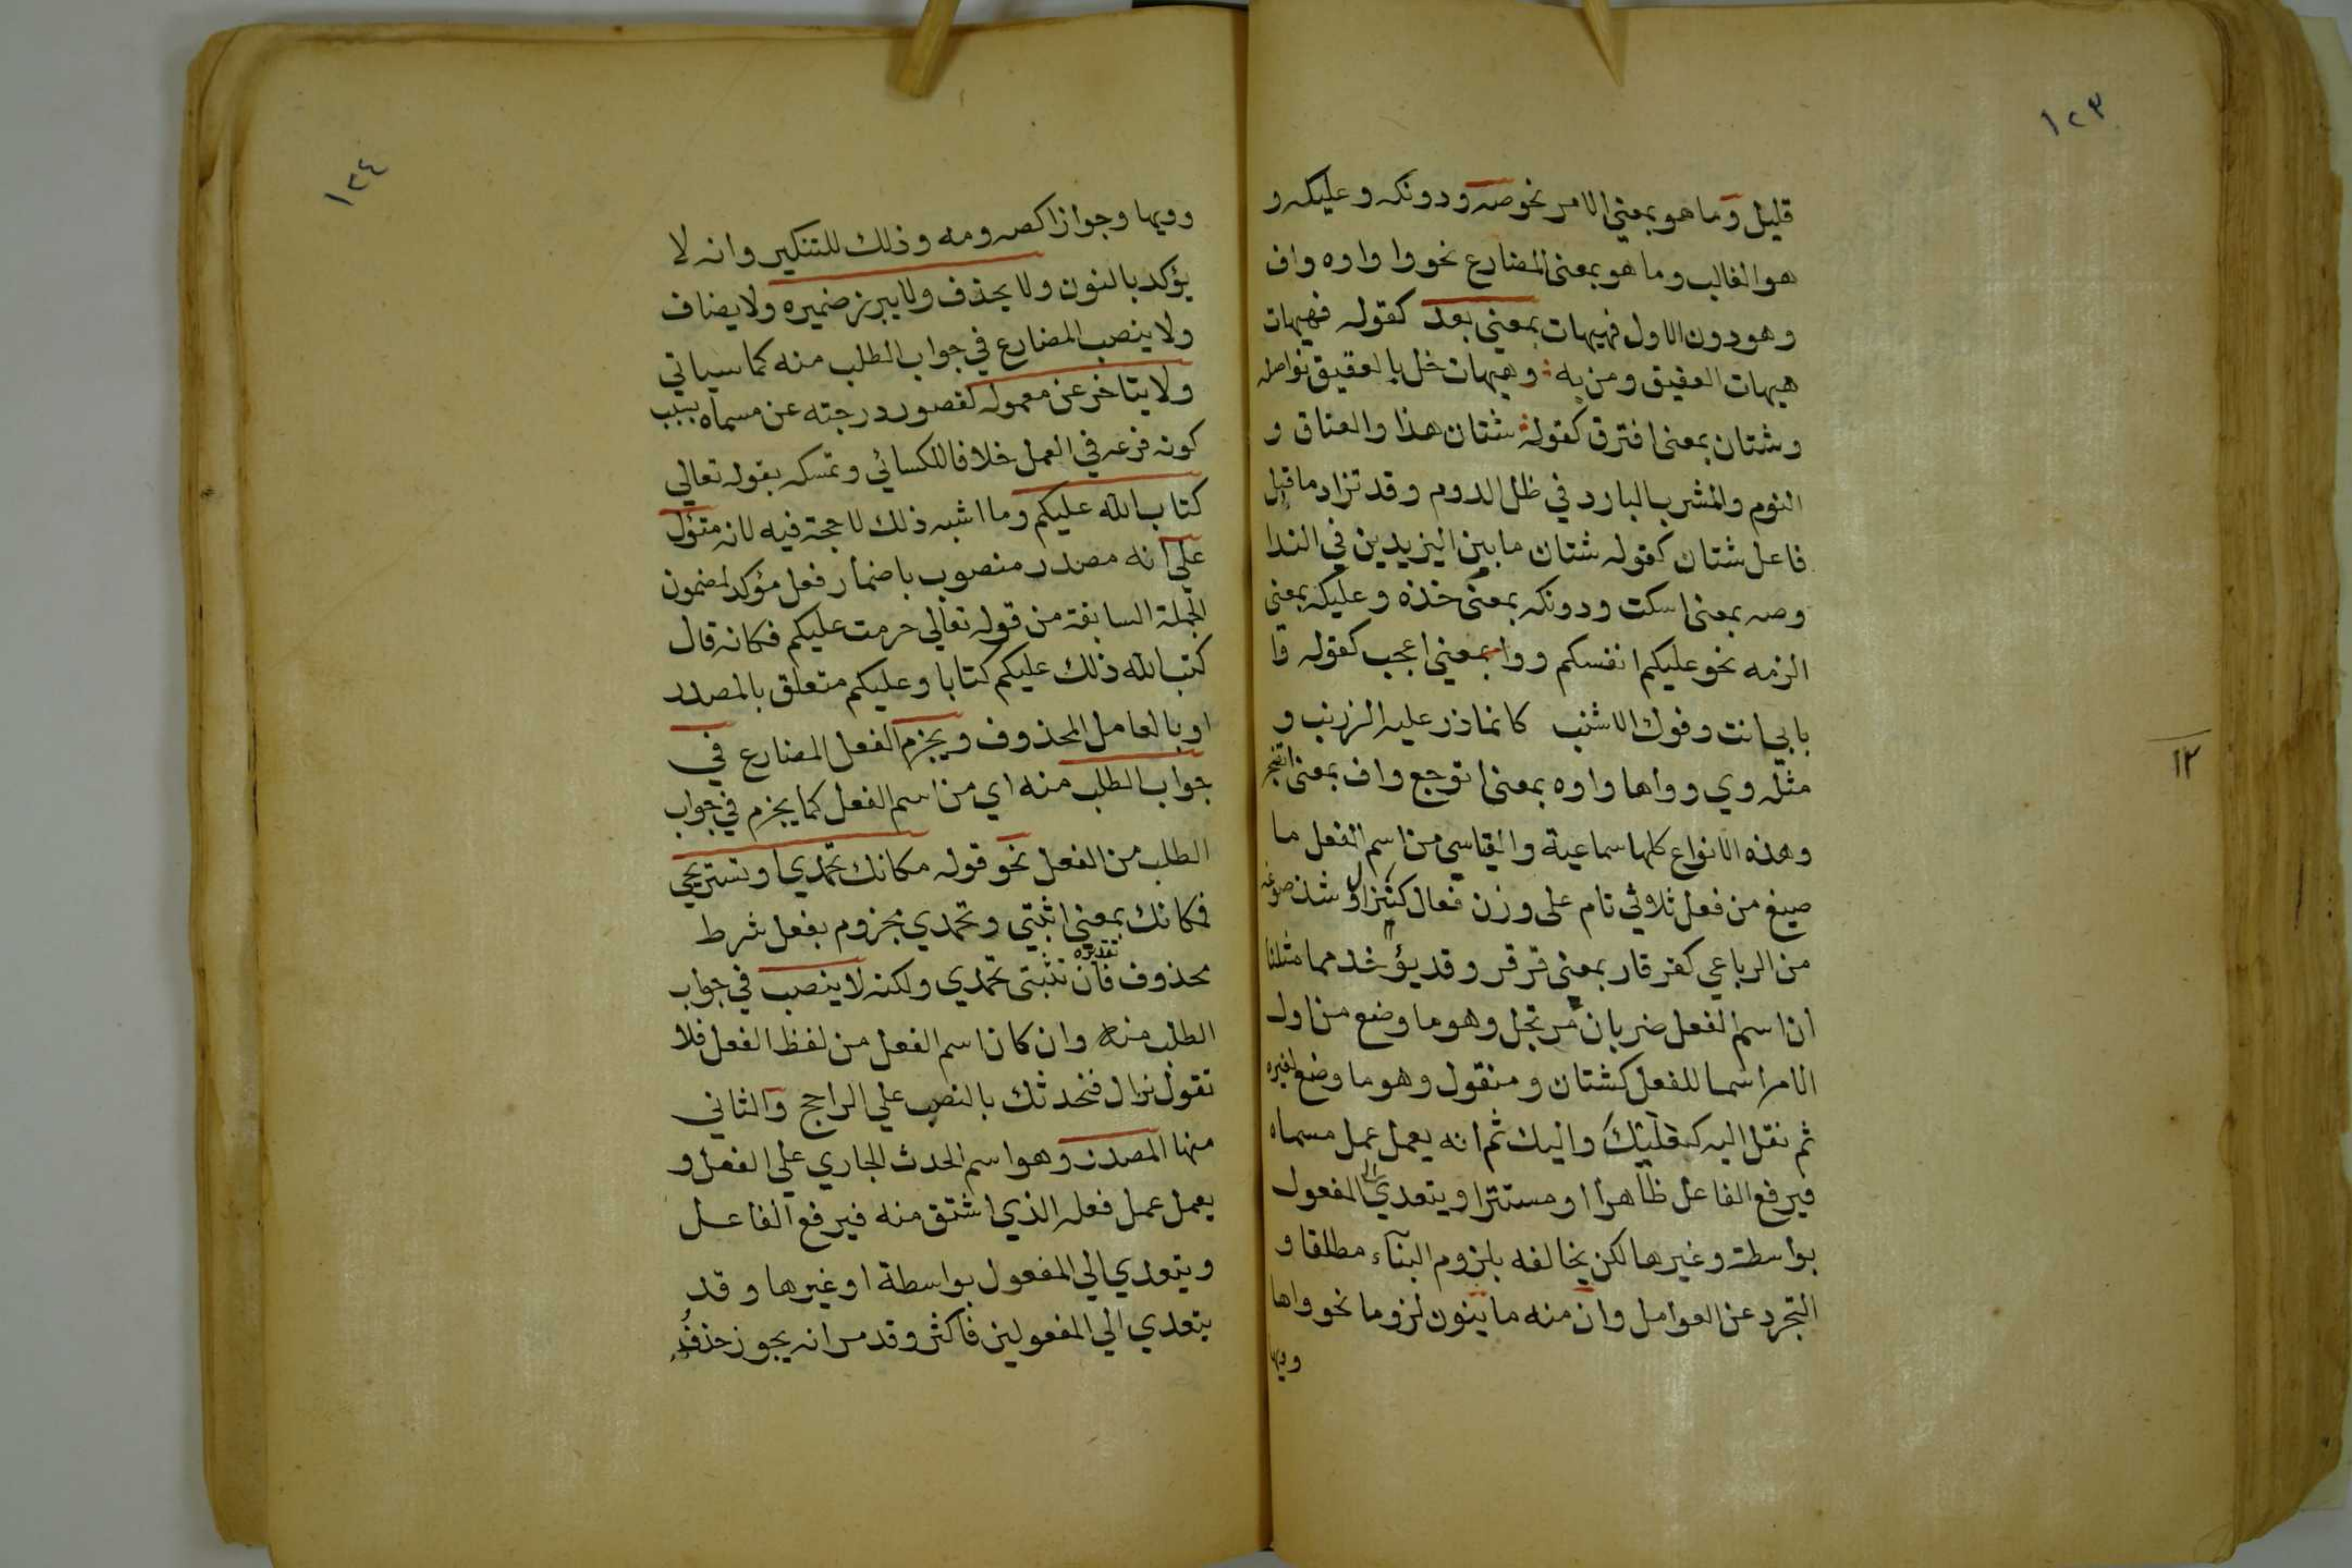 ١٢٣
قليل وما هو بمعنى الامر نحو صه ودونكه وعليكه و
هو الغالب وما هو بمعنى المضارع نحو وا واوه واف
وهو دون الاول فهيهات بمعنى بعد كقوله فهيهات
هيهات العقيق ومن به وهيهات خل بالعقيق نواصله
وشتان بمعنى افترق كقوله شتان هذا والعناق و
النوم والمشرب البارد في ظل الدوم وقد تزاد ما قبل
فاعل شتان كقوله شتان ما بين اليزيدين في الندا
وصه بمعنى اسكت ودونكه بمعنى خذه وعليكه بمعنى
الزمه نحو عليكم انفسكم ووا بمعنى اعجب كقوله وا
بابي انت وفوك الاشنب كانما ذر عليه الزرنب و
مثله وي وواها واوه بمعنى اتوجع واف بمعنى اتضجر
١٢
وهذه الانواع كلها سماعية والقياسي من اسم الفعل ما
صيغ من فعل ثلاثي تام على وزن فعال كنزال وشذ صوغه
من الرباعي كقرقار بمعنى قرقر وقد يؤخذ مما مثلنا
ان اسم الفعل ضربان مرتجل وهو ما وضع من اول
الامر اسما للفعل كشتان ومنقول وهو ما وضع لغيره
ثم نقل اليه كعليك واليك ثم انه يعمل عمل مسماه
فيرفع الفاعل ظاهرا او مستترا ويتعدي الى المفعول
بواسطة وغيرها لكن يخالفه بلزوم البناء مطلقا و
التجرد عن العوامل وان منه ما ينون لزوما نحو واها
وويها
١٢٤
وويها وجوازا كصه ومه وذلك للتنكير وانه لا
يؤكد بالنون ولا يحذف ولا يبرز ضميره ولا يضاف
ولا ينصب المضارع في جواب الطلب منه كما سياتي
ولا يتاخر عن معموله لقصور درجته عن مسماه بسبب
كونه فرعه في العمل خلافا للكسائي وتمسكه بقوله تعالي
كتاب الله عليكم وما اشبه ذلك لا حجة فيه لانه متؤل
علي انه مصدر منصوب باضمار فعل مؤكد لمضمون
الجملة السابقة من قوله تعالي حرمت عليكم فكانه قال
كتب الله ذلك عليكم كتابا وعليكم متعلق بالمصدر
او بالعامل المحذوف ويجزم الفعل المضارع في
جواب الطلب منه اي من اسم الفعل كما يجزم في جواب
الطلب من الفعل نحو قوله مكانك تحمدي او تستريحي
فمكانك بمعنى اثبتي وتحمدي مجزوم بفعل شرط
محذوف تقديره فان تثبتى تحمدي ولكنه لا ينصب في جواب
الطلب منه وان كان اسم الفعل من لفظ الفعل فلا
تقول نزال فنحدثك بالنصب علي الراجح والثاني
منها المصدر وهو اسم الحدث الجاري علي الفعل و
يعمل عمل فعله الذي اشتق منه فيرفع الفاعل
ويتعدي الي المفعول بواسطة او غيرها وقد
يتعدي الي المفعولين فاكثر وقد مر انه يجوز حذف